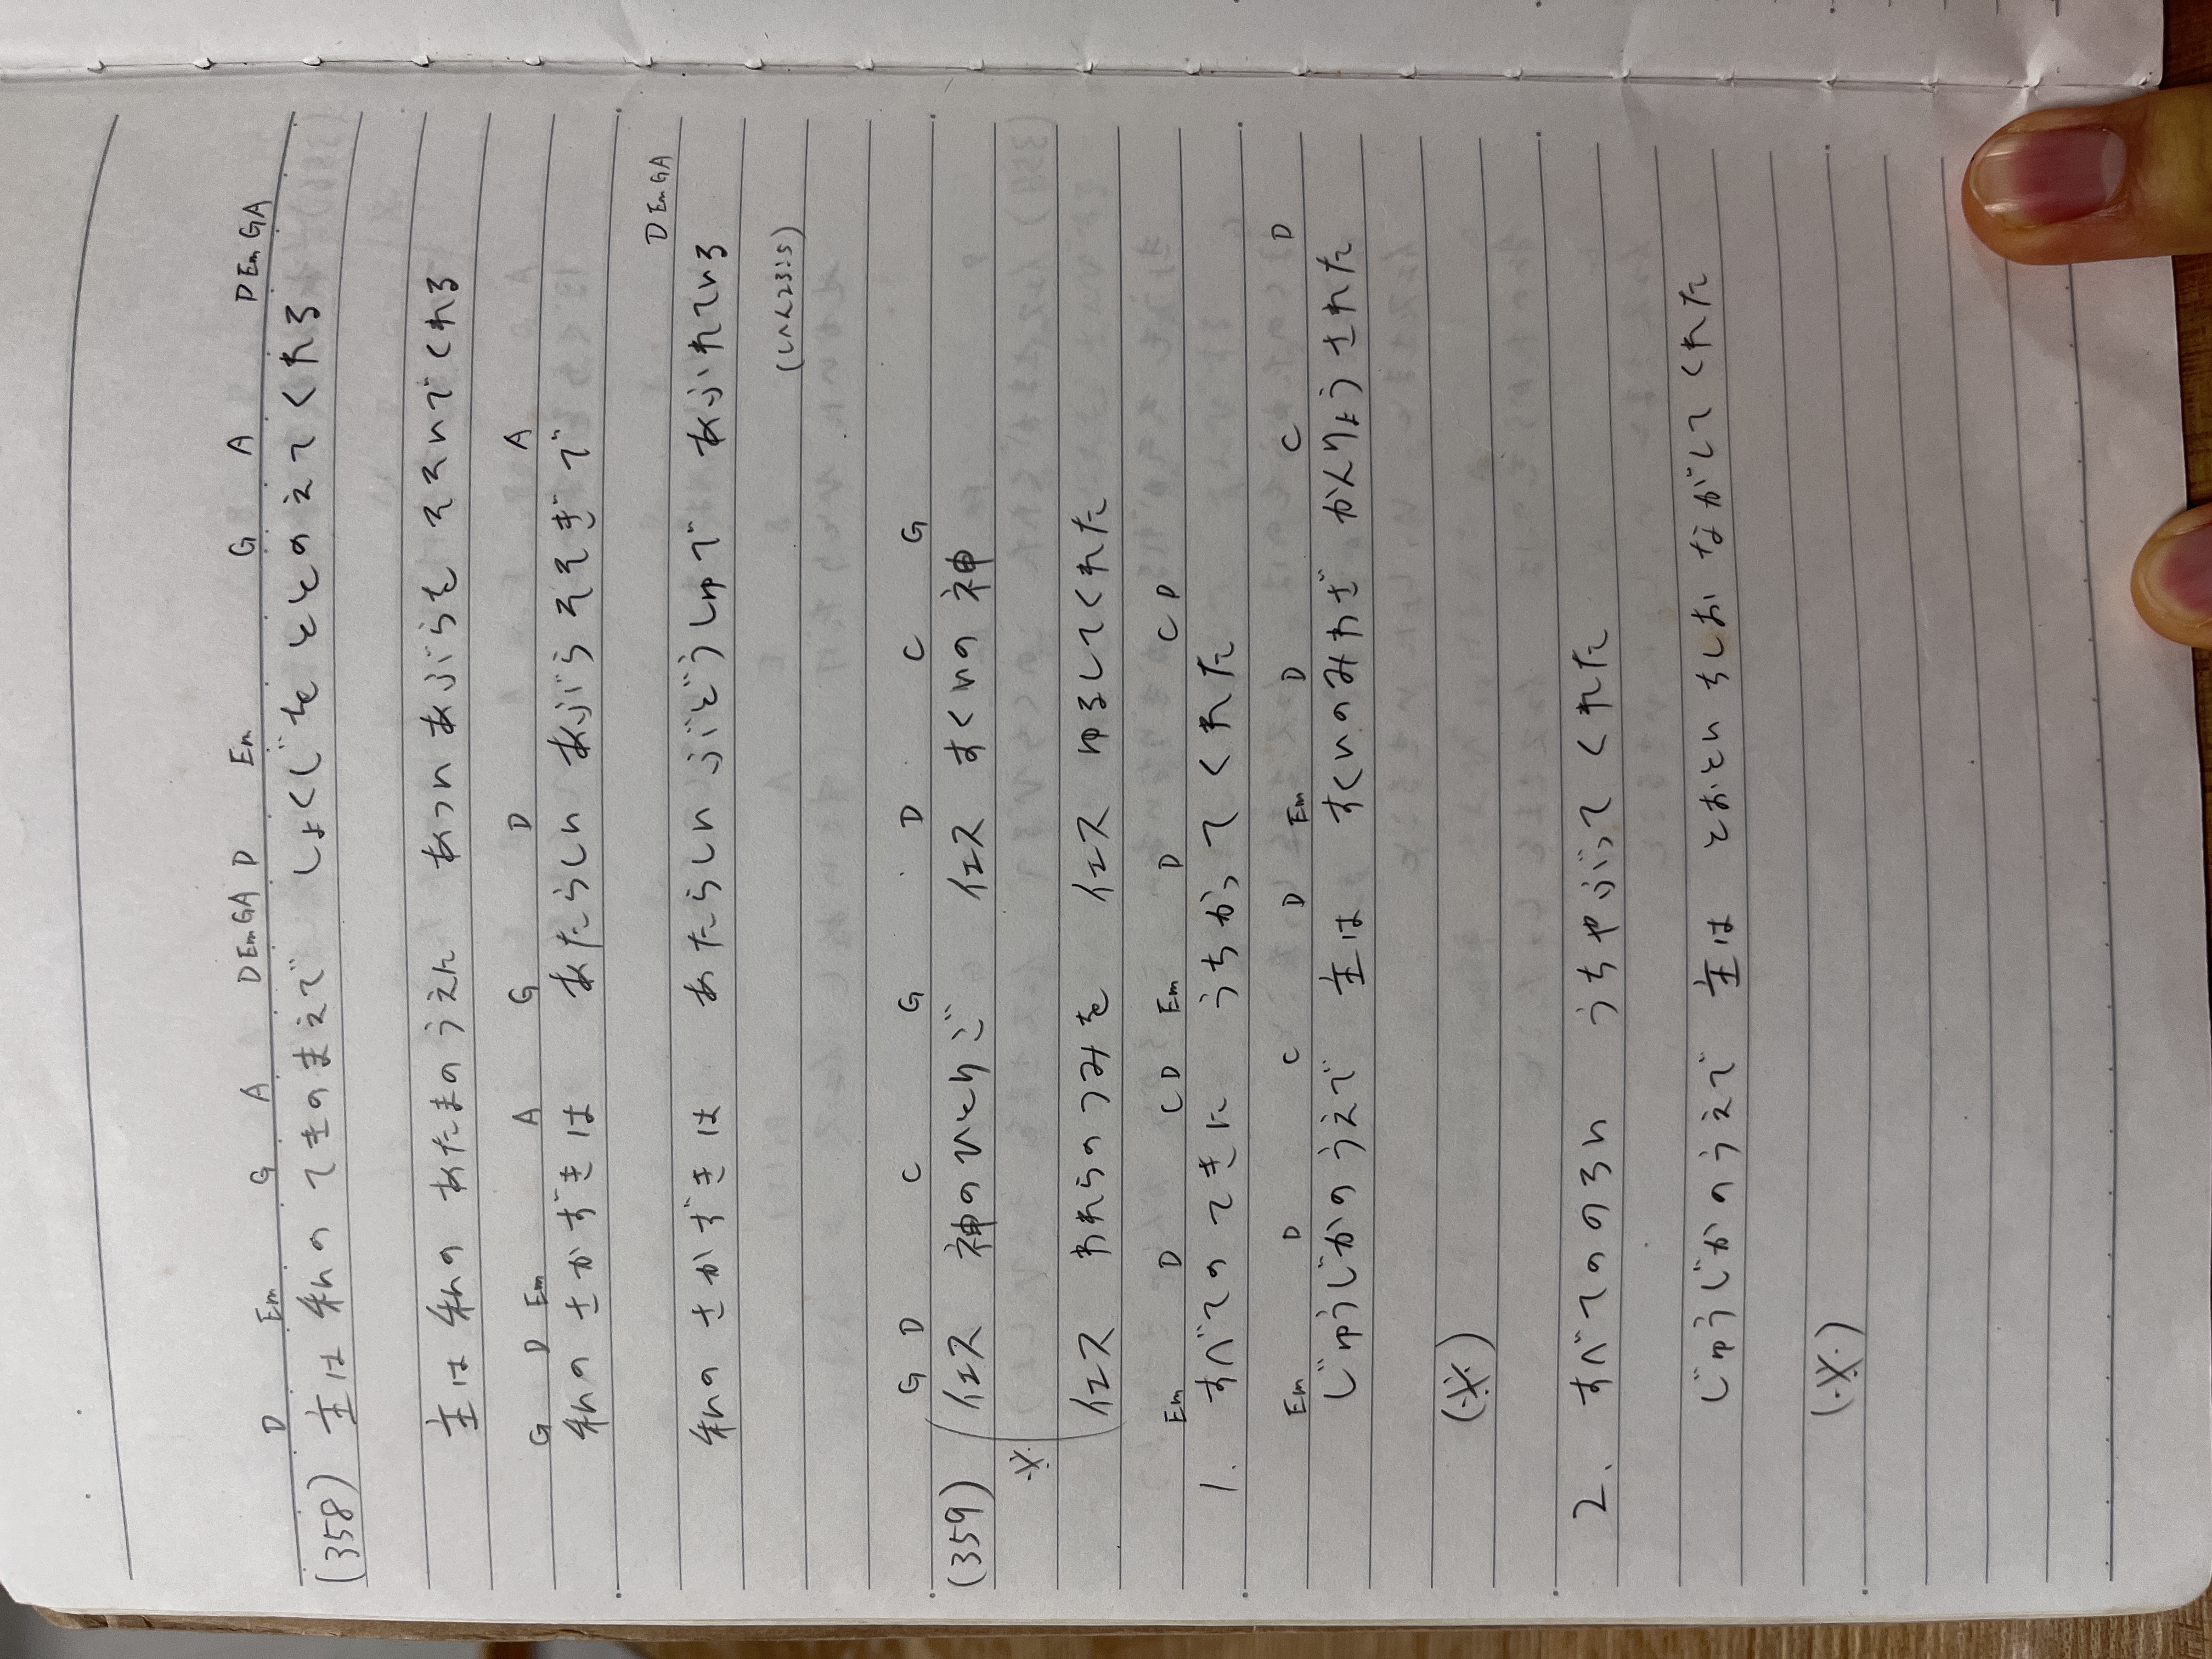 D Em G A D Em G A D Em G A D Em G A
(358) 主は 私の てきのまえで しょくじを ととのえてくれる
主は 私の あたまのうえに あつい あぶらを そそいでくれる
G D Em A G D A
私の さかずきは あたらしい あぶら そそぎで
D Em G A
私の さかずきは あたらしい ぶどうしゅで あふれている
(しへん23:5)
G D C G D C G
(359) イエス 神のひとりご イエス すくいの神
※
イエス われらのつみを イエス ゆるしてくれた
Em D C D Em D C D
1. すべてのてきに うちかってくれた
Em D C D Em D C D
じゅうじかのうえで 主は すくいのみわざ かんりょうされた
(※)
2. すべてののろい うちやぶってくれた
じゅうじかのうえで 主は とおといちしお ながしてくれた
(※)